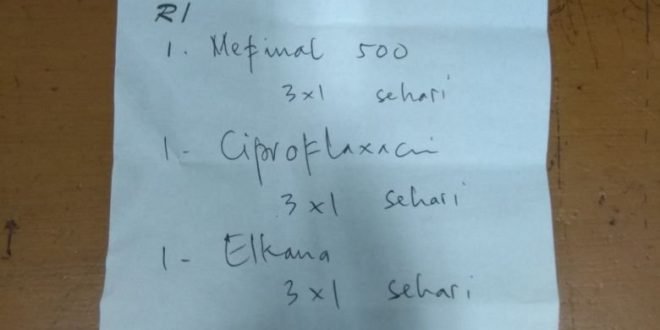 R/
1. Mefinal 500
3x1 sehari
1 - Ciprofloxacin
3x1 sehari
1 - Elkana
3x1 sehari